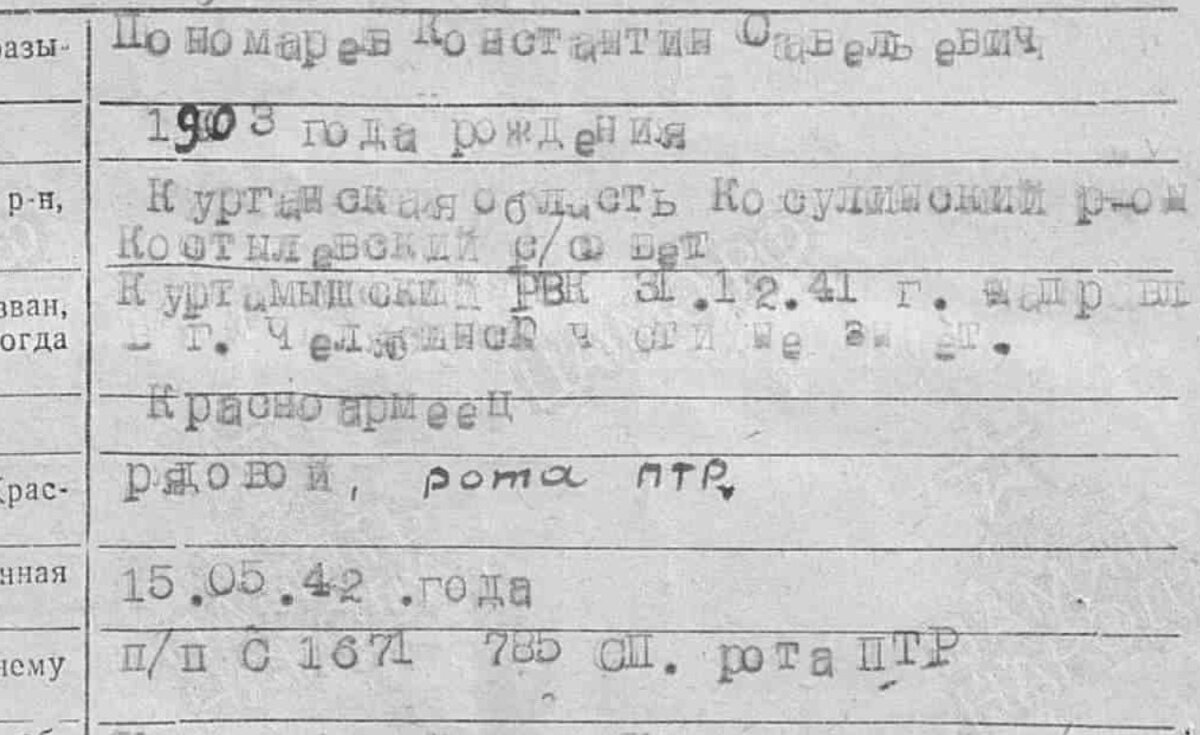 разы- Пономарев Константин Савельевич
1903 года рождения
р-н, Курганская область Косулинский р-он
Костылевский с/совет
зван, Куртамышский РВК 31.12.41 г. напр вл
огда в г. Челябинск ч сти не зн ет.
Красноармеец
Крас- рядовой, рота ПТР.
нная 15.05.42 .года
нему п/п С 1671 785 СП. рота ПТР